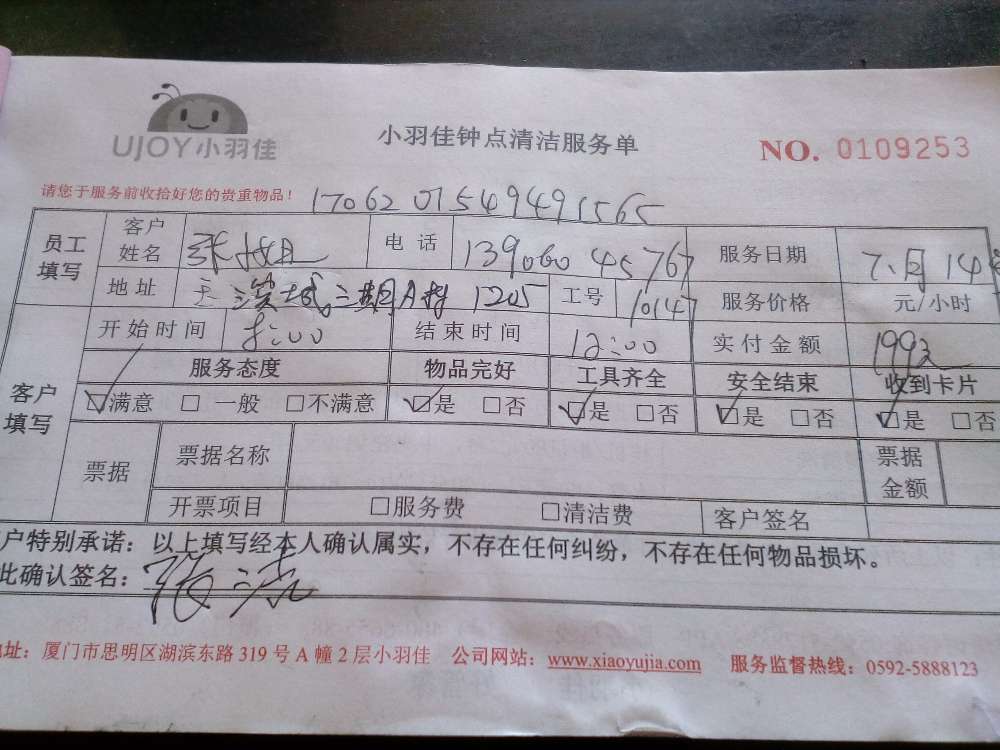 UJOY小羽佳
小羽佳钟点清洁服务单
NO. 0109253
请您于服务前收拾好您的贵重物品！
1706201549491565
员工填写 客户姓名 张小姐 电话 13906045767 服务日期 7月14
地址 三期A 1205 工号 10147 服务价格 元/小时
客户填写 开始时间 8:00 结束时间 12:00 实付金额 199
服务态度 物品完好 工具齐全 安全结束 收到卡片
☑满意 □一般 □不满意 ☑是 □否 ☑是 □否 ☑是 □否 ☑是 □否
票据 票据名称 票据金额
开票项目 □服务费 □清洁费 客户签名
户特别承诺：以上填写经本人确认属实，不存在任何纠纷，不存在任何物品损坏。
此确认签名：张
地址：厦门市思明区湖滨东路 319 号 A 幢 2 层小羽佳 公司网站：www.xiaoyujia.com 服务监督热线：0592-5888123